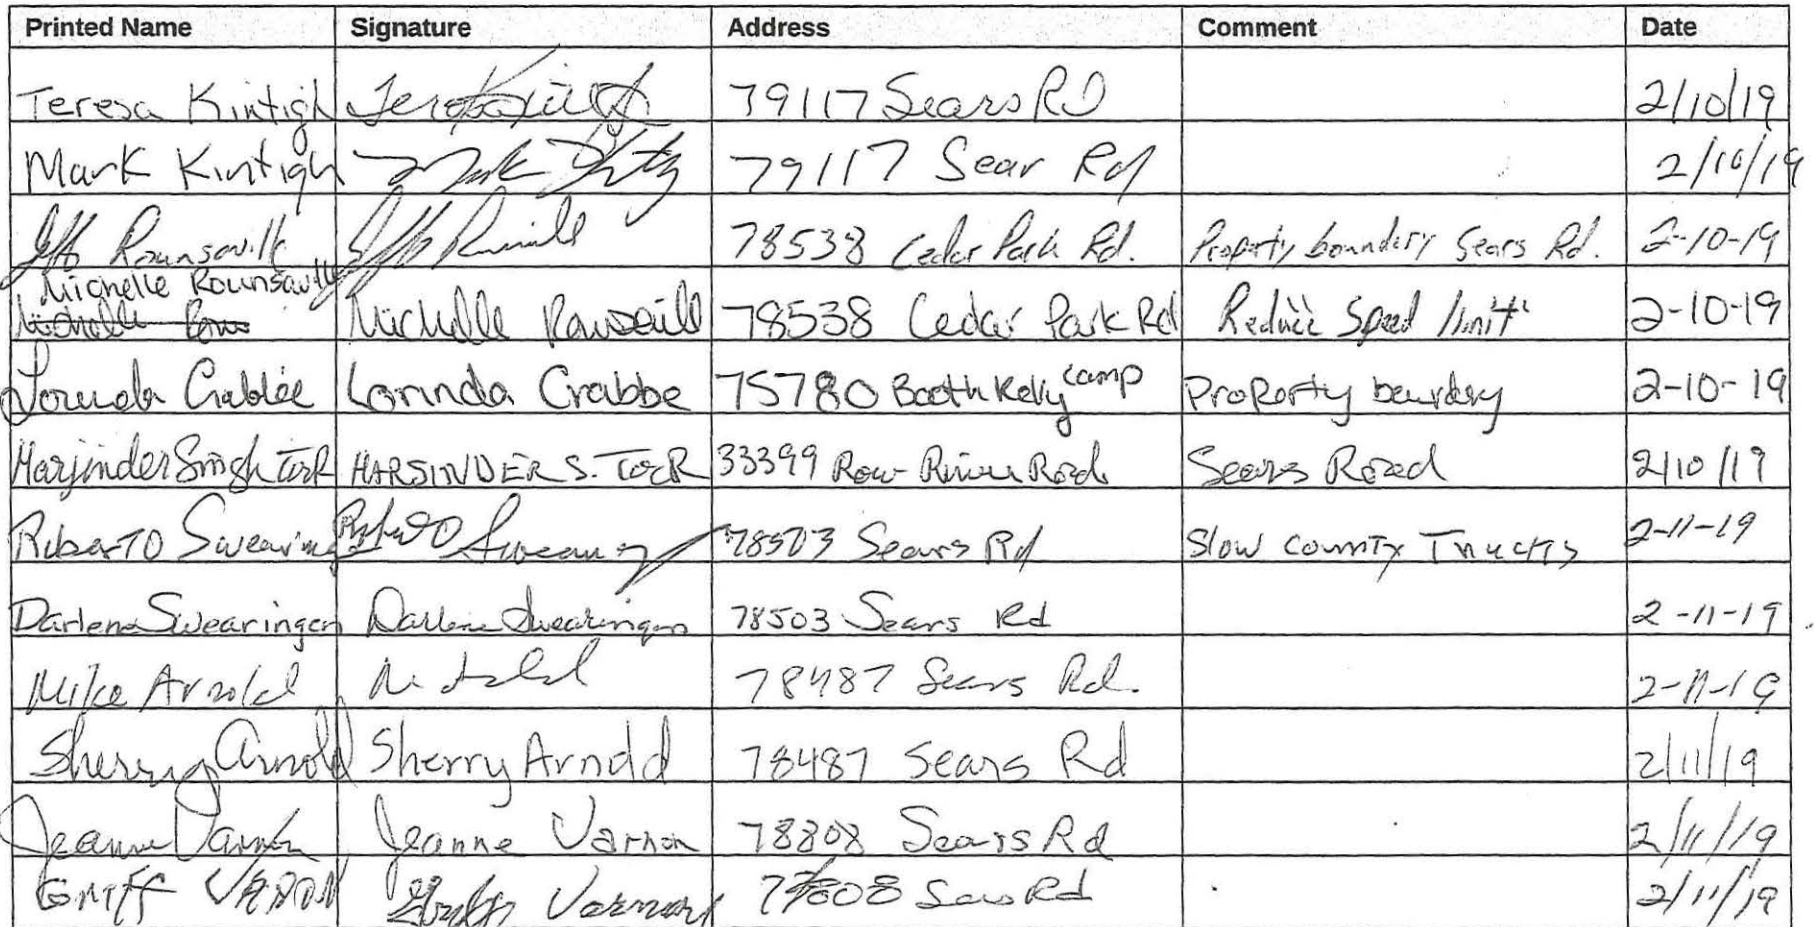 Printed Name Signature Address Comment Date
Teresa Kintigh 79117 Sears Rd 2/10/19
Mark Kintigh Mark 79117 Sear Rd 2/10/19
Jeff Rounsaville Jeff 78538 Cedar Park Rd. Property boundary Sears Rd. 2-10-19
Michelle Rounsaville
Michelle Michelle Rounsaville 78538 Cedar Park Rd Reduce Speed limit 2-10-19
Lorinda Crabbe Lorinda Crabbe 75780 Booth Kelly camp Property 2-10-19
Harjinder Singh Toor HARJINDER S. TOOR 33399 Row River Road Sears Road 2/10/19
Swearing 78503 Sears Rd Slow County Trucks 2-11-19
Darlene Swearingen Darlene Swearingen 78503 Sears Rd 2-11-19
Mike Arnold 78487 Sears Rd. 2-11-19
Sherry Arnold Sherry Arnold 78487 Sears Rd 2/11/19
Jeanne Varnon Jeanne Varnon 78808 Sears Rd 2/11/19
Griff Varnon Sears Rd 2/11/19